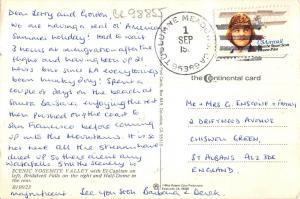 Dear Lerry and Gordon,
BL 98855
We are having a real American
Summer holiday! Had to wait
3 hours at immigration after the
flight and having been up 21
hours but since LA everythings
been hunky dory! Spent a
couple of days on the beach at
Santa Barbara, enjoying the rest
then pushed on the coast to
San Francisco before coming
up into the Mountains. It's so
hot here all the streams have
dried up so there aren't any
Waterfalls. Still the scenery is
magnificent See you soon Barbara & Derek
SCENIC YOSEMITE VALLEY with El Capitan on
left, Bridalveil Falls on the right and Half Dome in
the rear.
TUOLUMNE MEADOWS
1
SEP
the continental card
Mr + Mrs G. Ensoine + Family
2 Driftwood Avenue
Chiswell Green,
St Albans AL2 3DE
England.